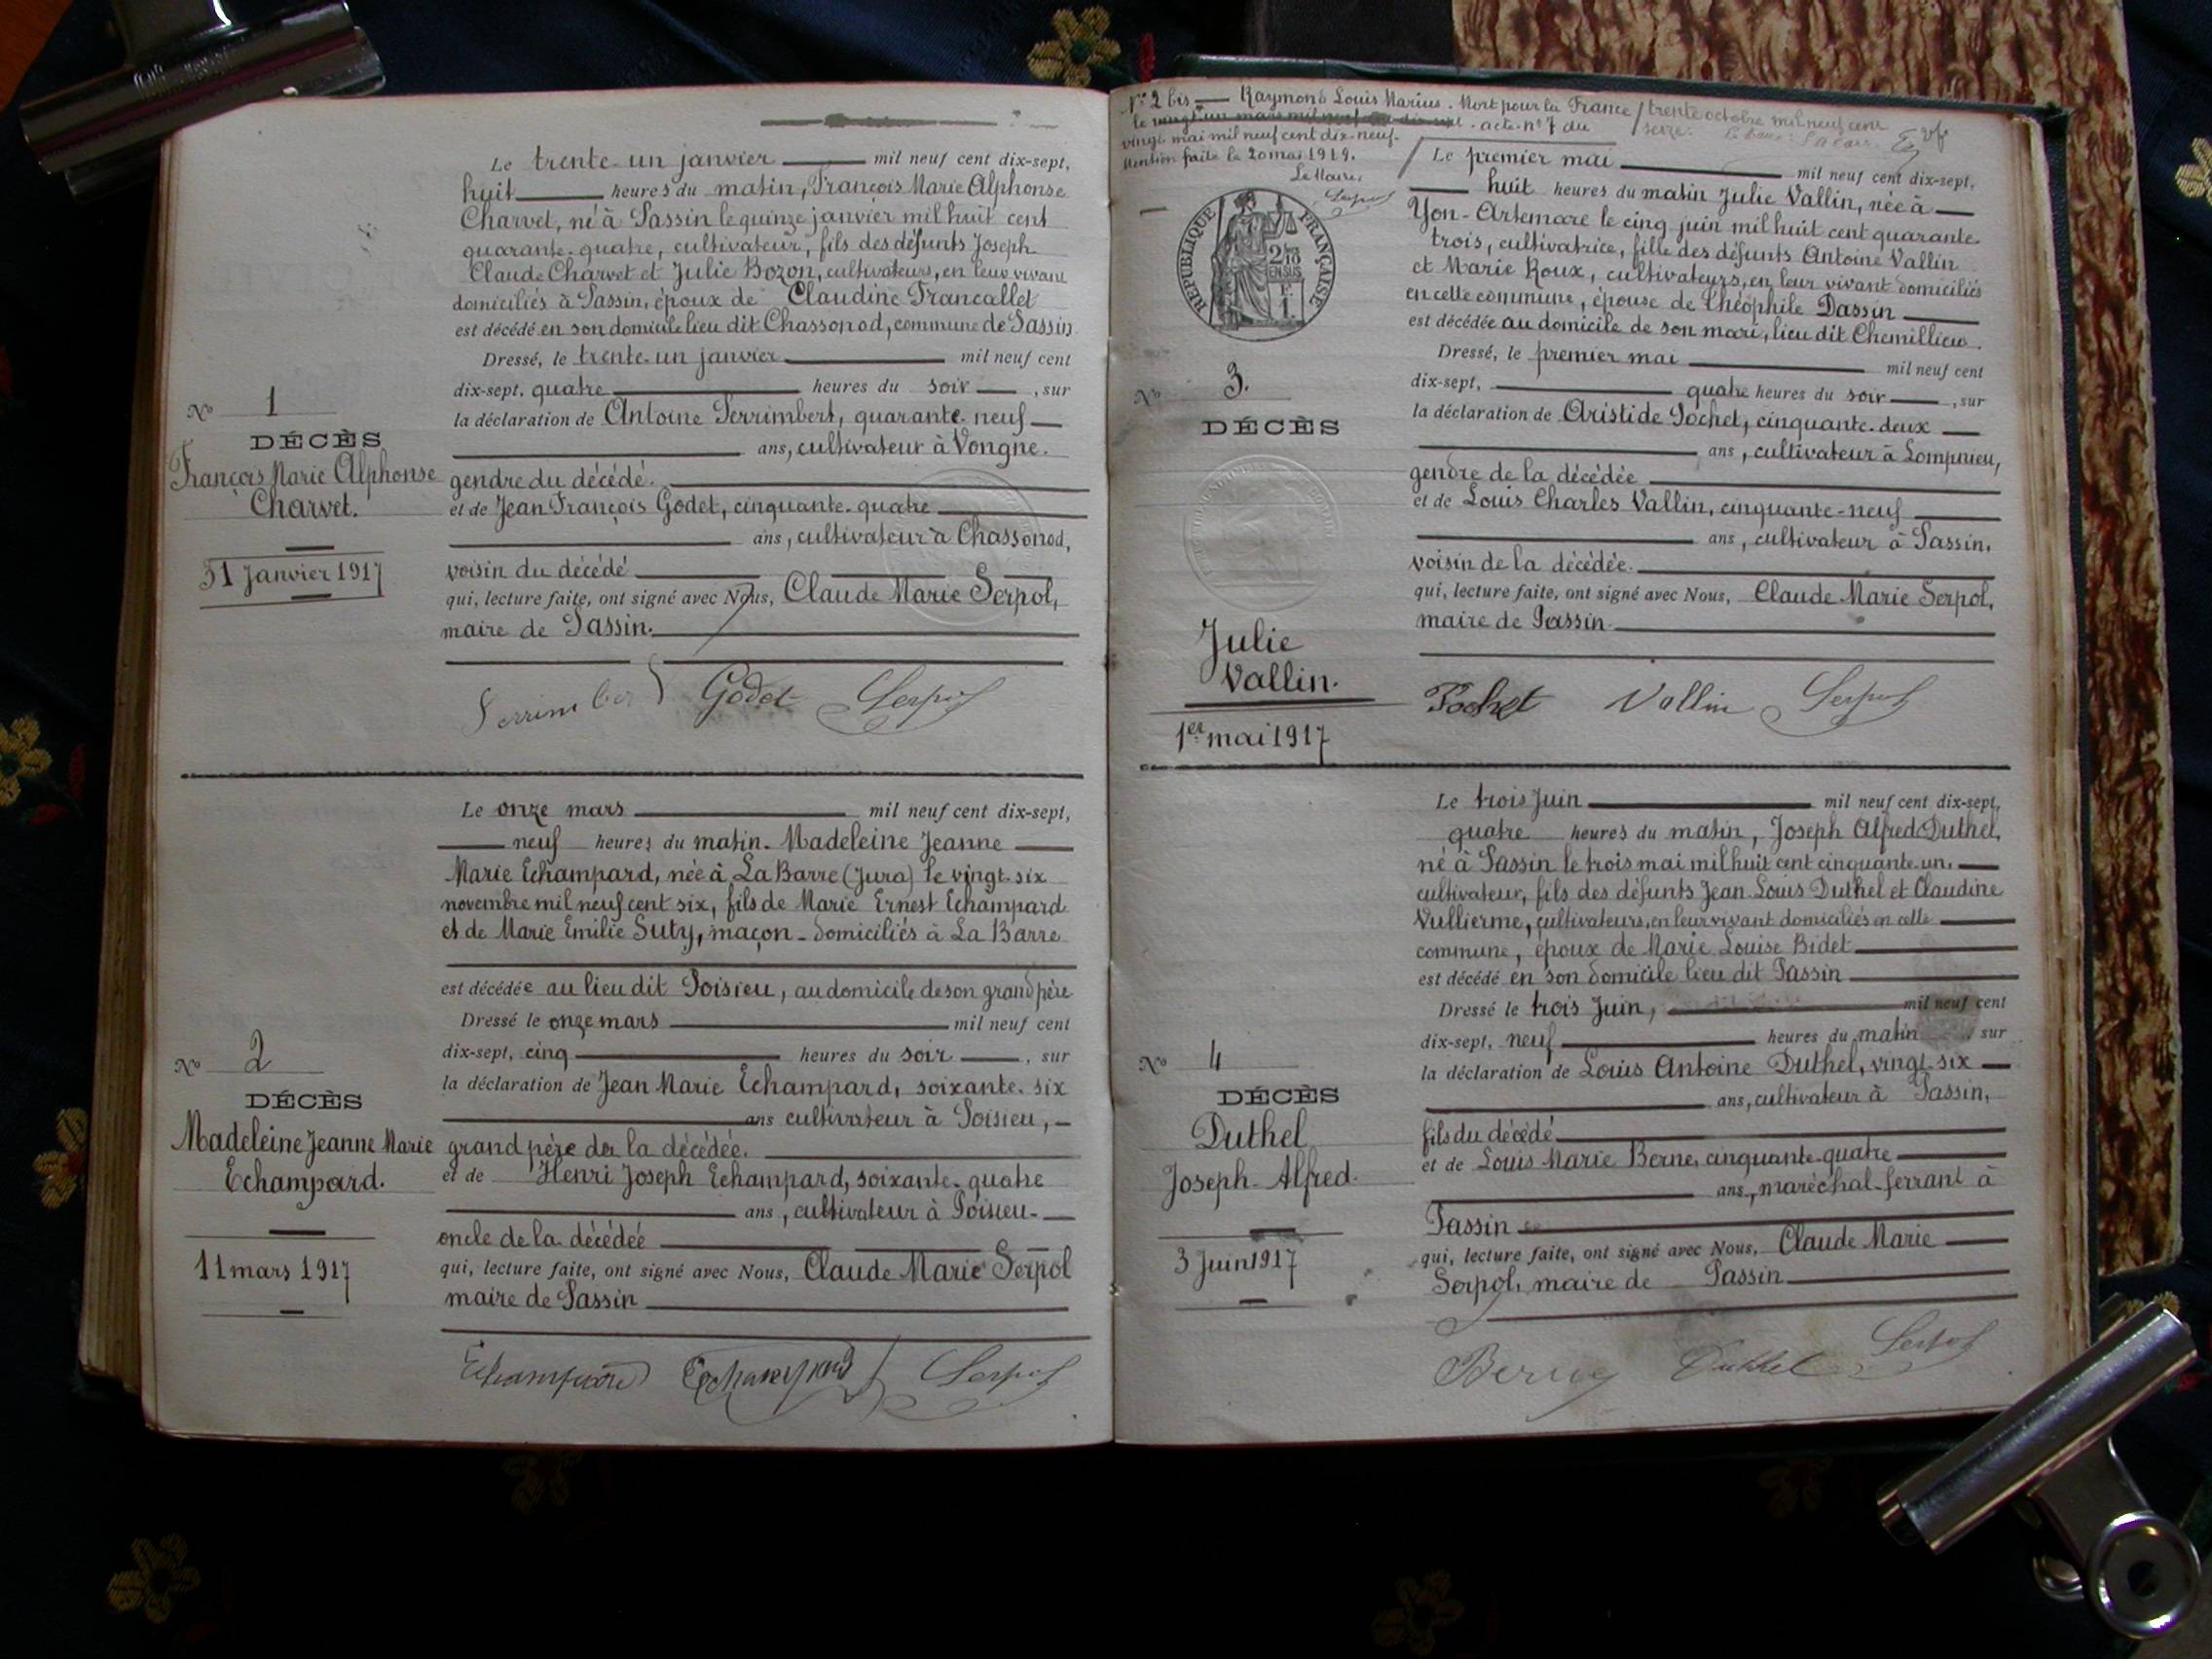 Le trente-un janvier mil neuf cent dix-sept,
huit heures du matin, François Marie Alphonse
Charvet, né à Passin le quinze janvier mil huit cent
quarante-quatre, cultivateur, fils des défunts Joseph
Claude Charvet et Julie Bozon, cultivateurs, en leur vivant
domiciliés à Passin, époux de Claudine Francallet
est décédé en son domicile lieu dit Chassonod, commune de Passin
Dressé, le trente-un janvier mil neuf cent
dix-sept, quatre heures du soir, sur
la déclaration de Antoine Perrimbert, quarante-neuf
ans, cultivateur à Vongne.
gendre du décédé.
et de Jean François Godet, cinquante-quatre
ans, cultivateur à Chassonod,
voisin du décédé
qui, lecture faite, ont signé avec Nous, Claude Marie Serpol,
maire de Passin.
Perrimbert Godet Serpol
No 1
DÉCÈS
François Marie Alphonse
Charvet.
31 Janvier 1917
Le onze mars mil neuf cent dix-sept,
neuf heures du matin. Madeleine Jeanne
Marie Echampard, née à La Barre (Jura) le vingt-six
novembre mil neuf cent six, fils de Marie Ernest Echampard
et de Marie Emilie Suty, maçon - domiciliés à La Barre
est décédée au lieu dit Poisieu, au domicile de son grand père
Dressé le onze mars mil neuf cent
dix-sept, cinq heures du soir, sur
la déclaration de Jean Marie Echampard, soixante-six
ans cultivateur à Poisieu,
grand père de la décédée.
et de Henri Joseph Echampard, soixante-quatre
ans, cultivateur à Poisieu-
oncle de la décédée
qui, lecture faite, ont signé avec Nous, Claude Marie Serpol
maire de Passin
Echampard Echampard Serpol
No 2
DÉCÈS
Madeleine Jeanne Marie
Echampard.
11 mars 1917
No 2 bis Raymond Louis Marius. Mort pour la France / trente octobre mil neuf cent
le vingt un mars mil neuf cent dix-sept. acte no 7 du / seize.
vingt mai mil neuf cent dix-neuf.
Mention faite le 20 mai 1919.
Le Maire,
Serpol
RÉPUBLIQUE FRANÇAISE
2/10
EN SUS
F.
1
Le premier mai mil neuf cent dix-sept,
huit heures du matin Julie Vallin, née à
Yon-Artemare le cinq juin mil huit cent quarante-
trois, cultivatrice, fille des défunts Antoine Vallin
et Marie Roux, cultivateurs, en leur vivant domiciliés
en cette commune, épouse de Théophile Dassin
est décédée au domicile de son mari, lieu dit Chemillieu.
Dressé, le premier mai mil neuf cent
dix-sept, quatre heures du soir, sur
la déclaration de Aristide Pochet, cinquante-deux
ans, cultivateur à Lompnieu,
gendre de la décédée
et de Louis Charles Vallin, cinquante-neuf
ans, cultivateur à Passin.
voisin de la décédée.
qui, lecture faite, ont signé avec Nous, Claude Marie Serpol,
maire de Passin.
Pochet Vallin Serpol
No 3.
DÉCÈS
Julie
Vallin.
1er mai 1917
Le trois Juin mil neuf cent dix-sept,
quatre heures du matin, Joseph Alfred Duthel,
né à Passin le trois mai mil huit cent cinquante-un,
cultivateur, fils des défunts Jean-Louis Duthel et Claudine
Vullierme, cultivateurs, en leur vivant domiciliés en cette
commune, époux de Marie Louise Bidet
est décédé en son domicile lieu dit Passin
Dressé le trois Juin, mil neuf cent
dix-sept, neuf heures du matin sur
la déclaration de Louis Antoine Duthel, vingt-six
ans, cultivateur à Passin,
fils du décédé
et de Louis Marie Berne, cinquante-quatre
ans, maréchal-ferrant à
Passin
qui, lecture faite, ont signé avec Nous, Claude Marie
Serpol, maire de Passin
Berne Duthel Serpol
No 4
DÉCÈS
Duthel
Joseph-Alfred.
3 Juin 1917